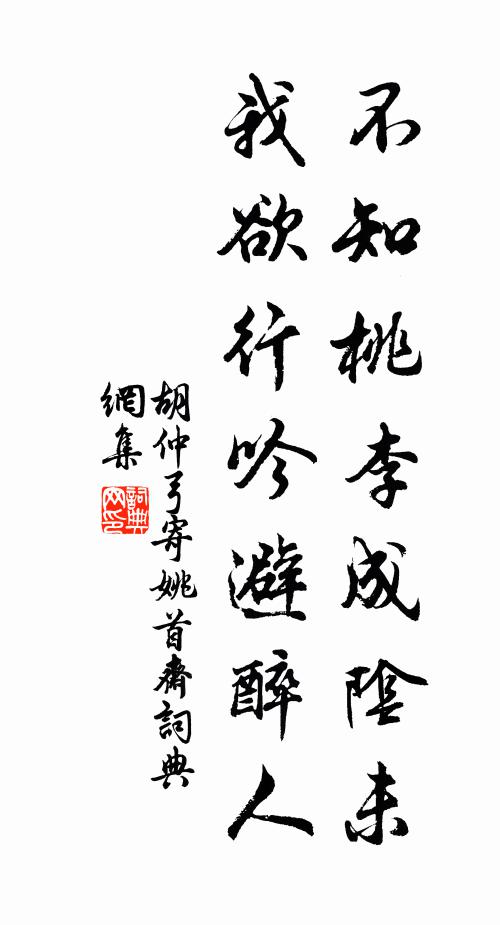 不知桃李成陰未
我欲行吟避醉人
胡仲弓寄姚首齋詞典
網集
詞典
网印